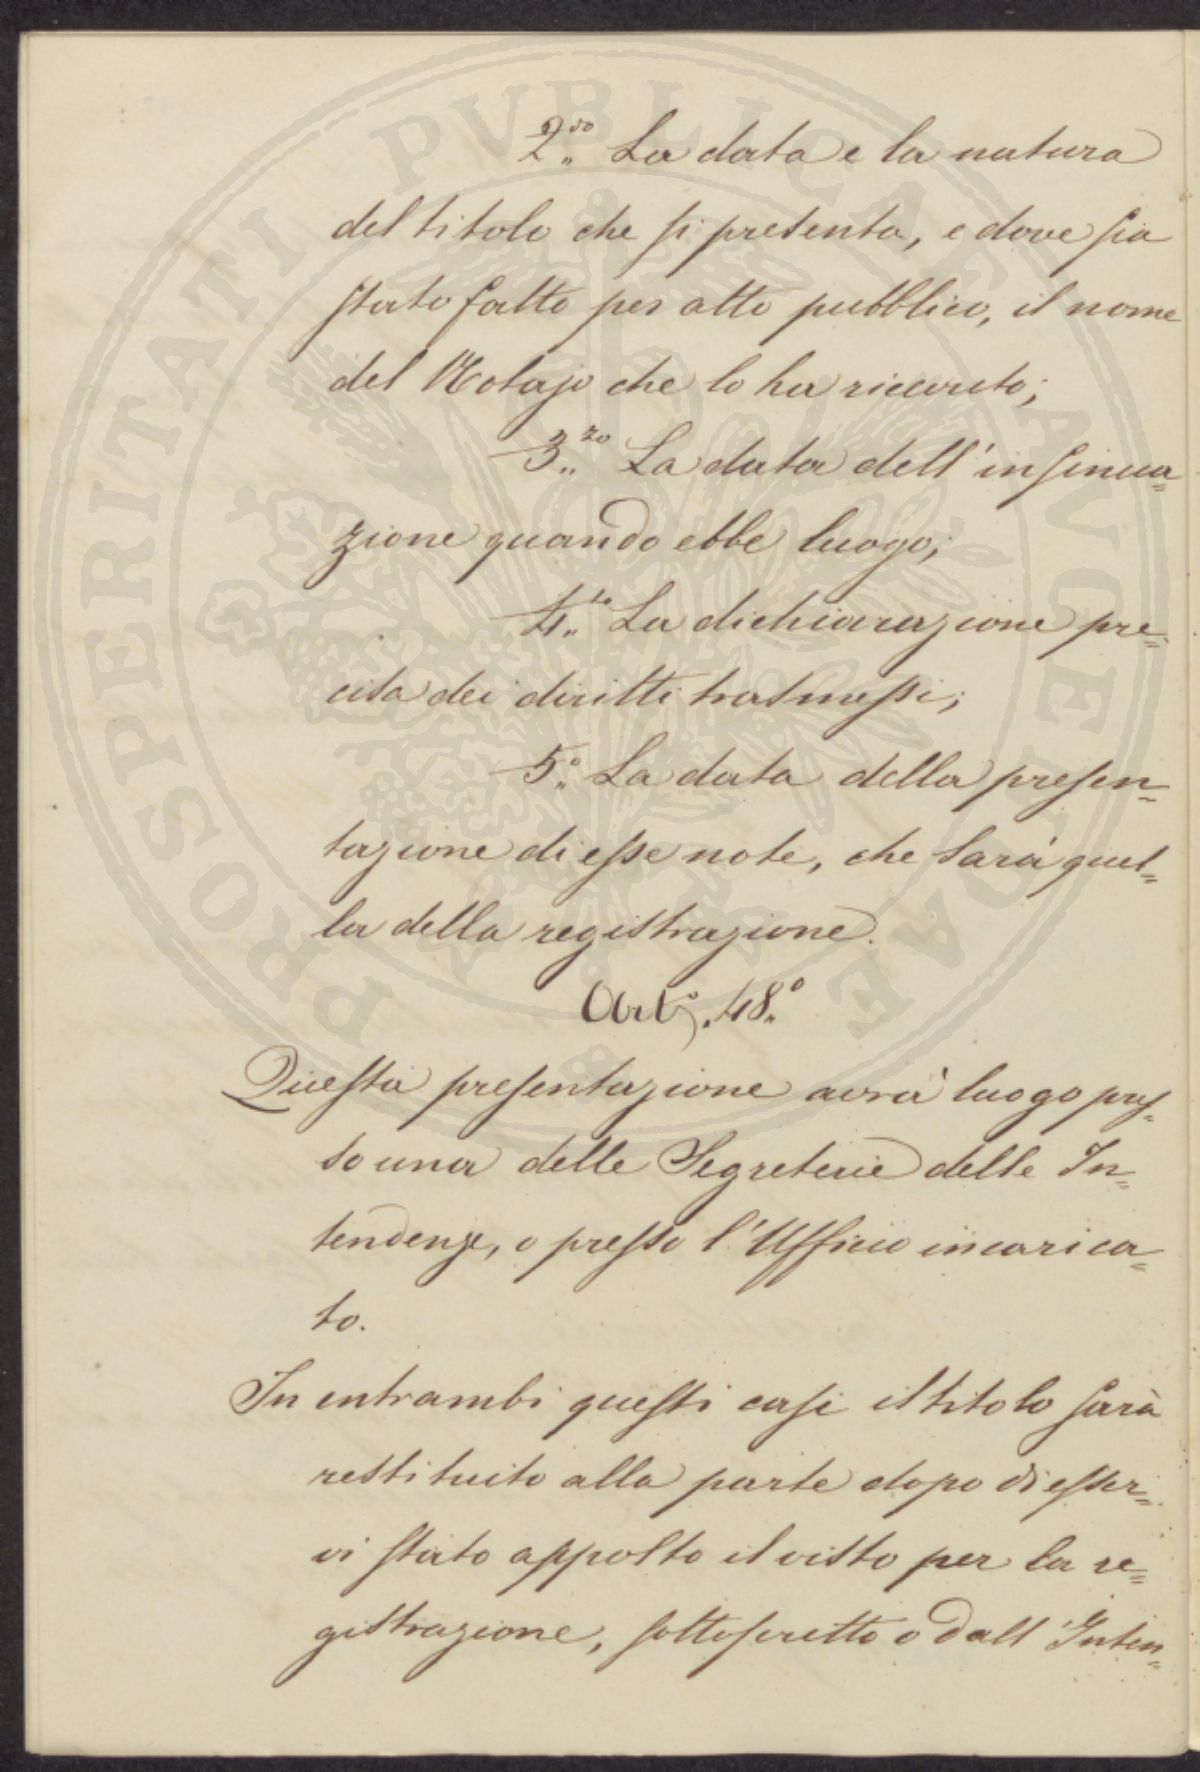 2.do La data e la natura
del titolo che si presenta, e dove sia
stato fatto per atto pubblico, il nome
del Notajo che lo ha ricevuto;
3.zo La data dell'insinua=
zione quando ebbe luogo;
4.to La dichiarazione pre=
cisa dei diritti trasmessi;
5.o La data della presen=
tazione di esse note, che sarà quel=
la della registrazione.
Art.o 48.o
Questa presentazione avrà luogo pres=
so una delle Segreterie delle In=
tendenze, o presso l'Ufficio incarica=
to.
In entrambi questi casi il titolo sarà
restituito alla parte dopo di esser=
vi stato apposto il visto per la re=
gistrazione, sottoscritto o dall'Inten=
PROSPERITATI PVBLICAE AVGENDAE